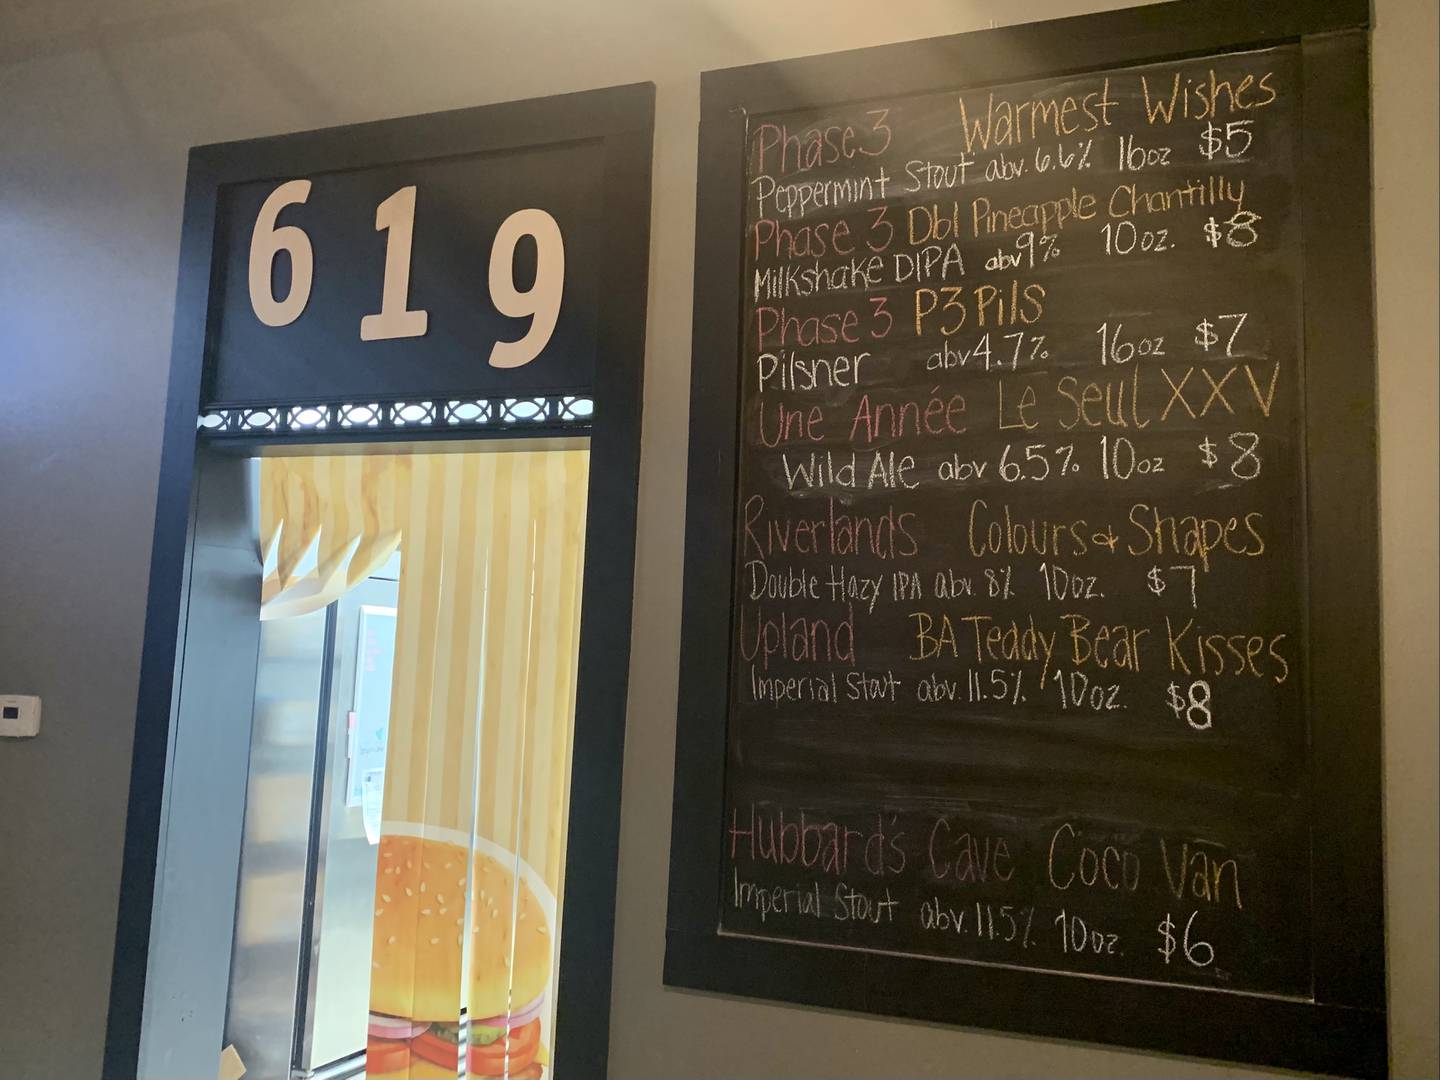 619
Phase 3 Warmest Wishes
Peppermint Stout abv. 6.6% 16oz $5
Phase 3 Dbl Pineapple Chantilly
Milkshake DIPA abv 9% 10oz. $8
Phase 3 P3 Pils
Pilsner abv 4.7% 16oz $7
Une Année Le Seul XXV
Wild Ale abv 6.5% 10oz $8
Riverlands Colours & Shapes
Double Hazy IPA abv. 8% 10oz. $7
Upland BA Teddy Bear Kisses
Imperial Stout abv. 11.5% 10oz. $8
Hubbard's Cave Coco Van
Imperial Stout abv. 11.5% 10oz. $6